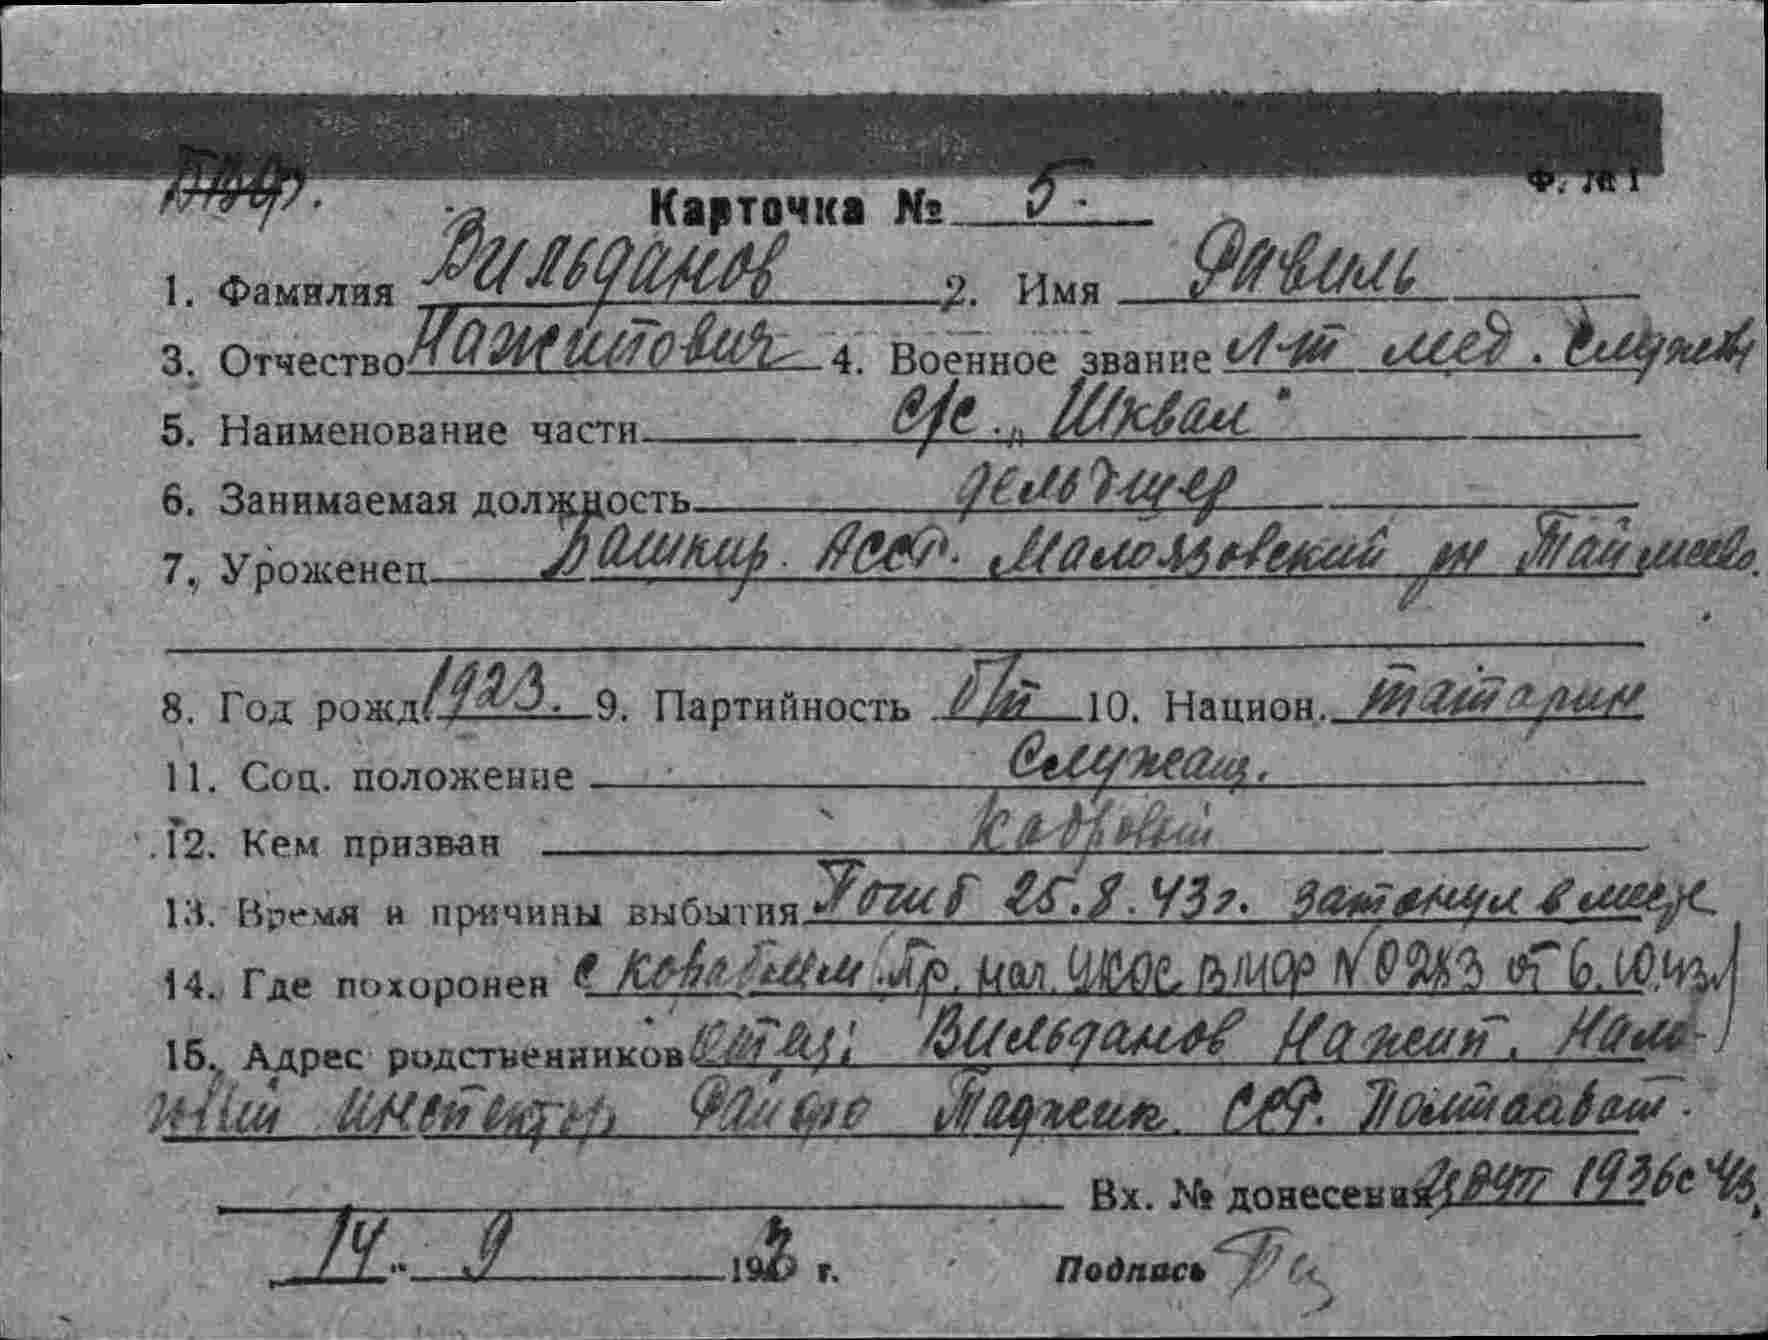 Ф. № 1
Карточка № 5.
1. Фамилия Вильданов 2. Имя Равиль
3. Отчество Нажитович 4. Военное звание л-т мед. службы
5. Наименование части с/с. „Шквал"
6. Занимаемая должность фельдшер
7. Уроженец Башкир. АССР. Малоязовский рн Таймеево.
8. Год рожд. 1923. 9. Партийность б/п 10. Национ. татарин
11. Соц. положение Служащ.
12. Кем призван Кадровый
13. Время и причины выбытия Погиб 25.8.43г. затонул вместе
14. Где похоронен с кораблем (Пр. нач. УКОС ВМФ N0283 от 6.10.43г)
15. Адрес родственников отец: Вильданов Нажип. Нало-
говый инспектор Райфо Таджик. ССР. Полтаабат.
Вх. № донесения 1936с 43.
14. 9 193 г. Подпись